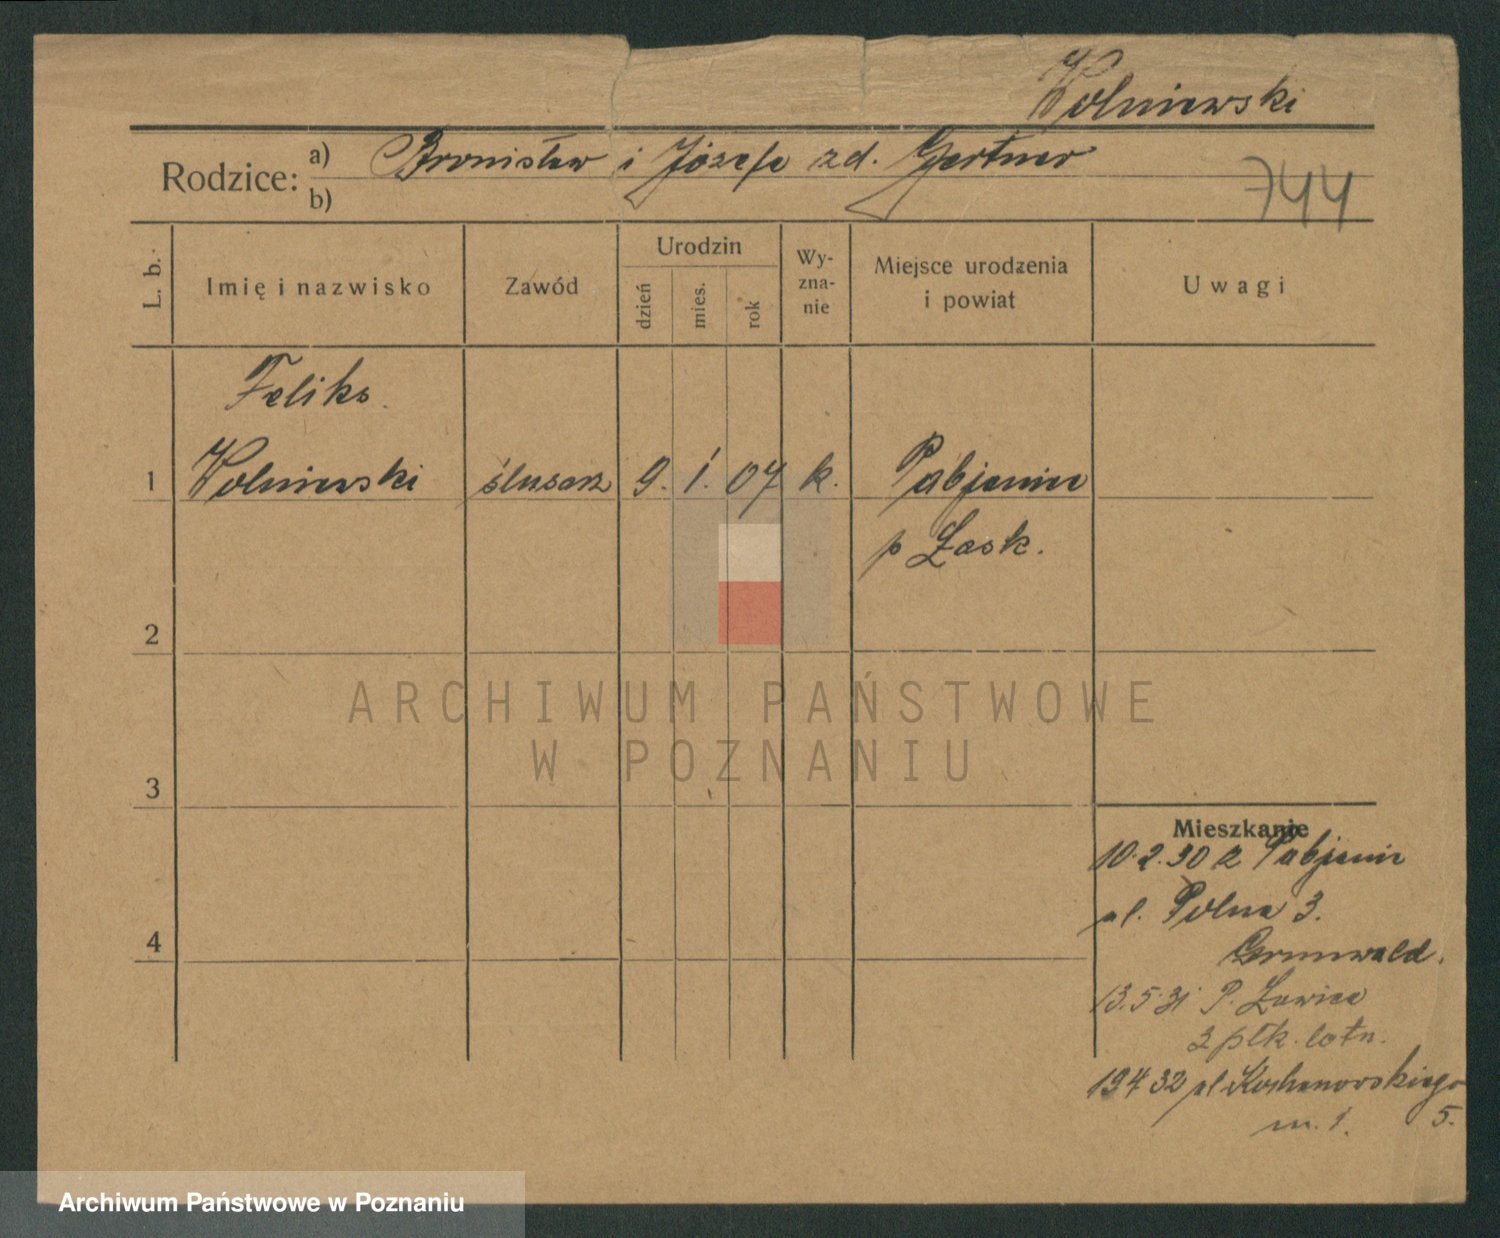 Wolniewski
Rodzice: a) Bronisław i Józefa zd. Gertner
b)
744
L. b.
Imię i nazwisko
Zawód
Urodzin
dzień
mies.
rok
Wy-
zna-
nie
Miejsce urodzenia
i powiat
Uwagi
Feliks
1 Wolniewski ślusarz 9. 1. 07 k. Pabjanice
p Łask.
2
3
4
Mieszkanie
10.2.30 z Pabjanic
ul. Polna 3.
Grunwald.
13.5.31 P. Ławica
3 płk. lotn.
19 4 32 ul. Kochanowskiego
m. 1. 5.
ARCHIWUM PAŃSTWOWE
W POZNANIU
Archiwum Państwowe w Poznaniu